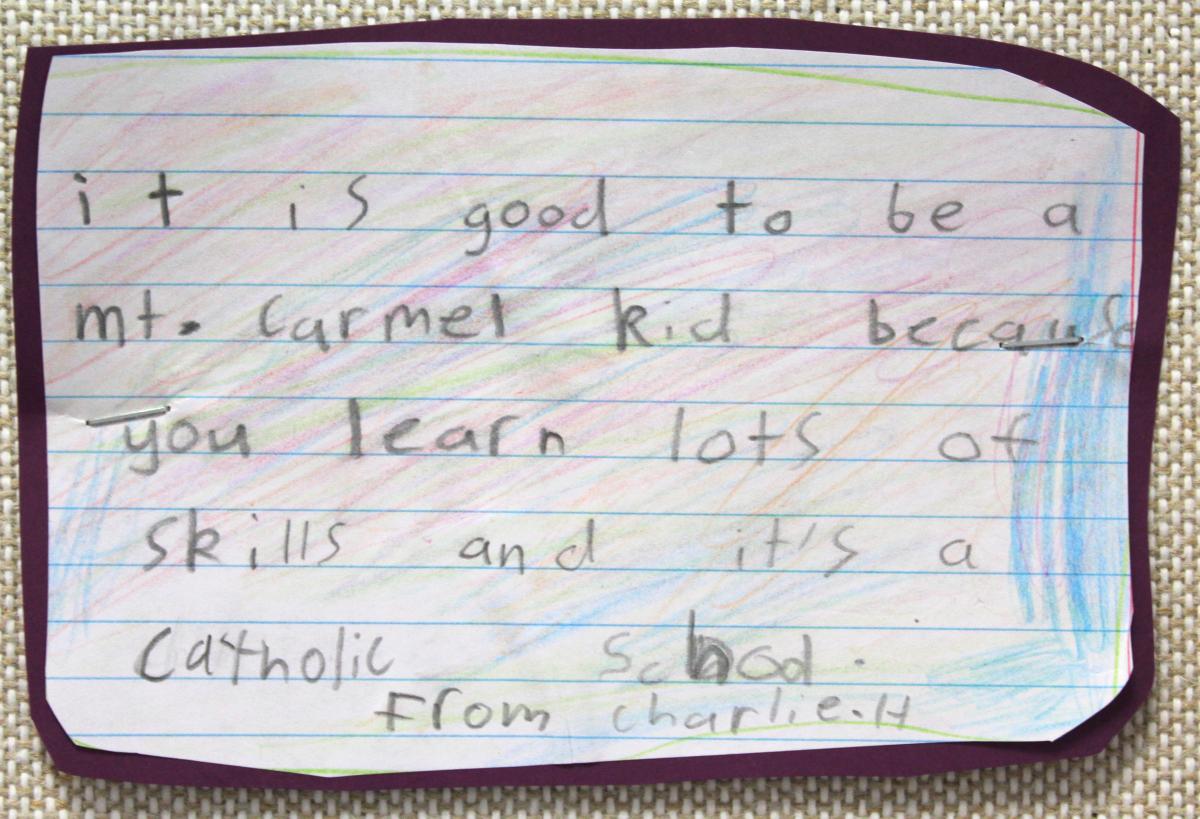 it is good to be a
mt. Carmel kid because
you learn lots of
skills and it's a
Catholic School.
From charlie.H